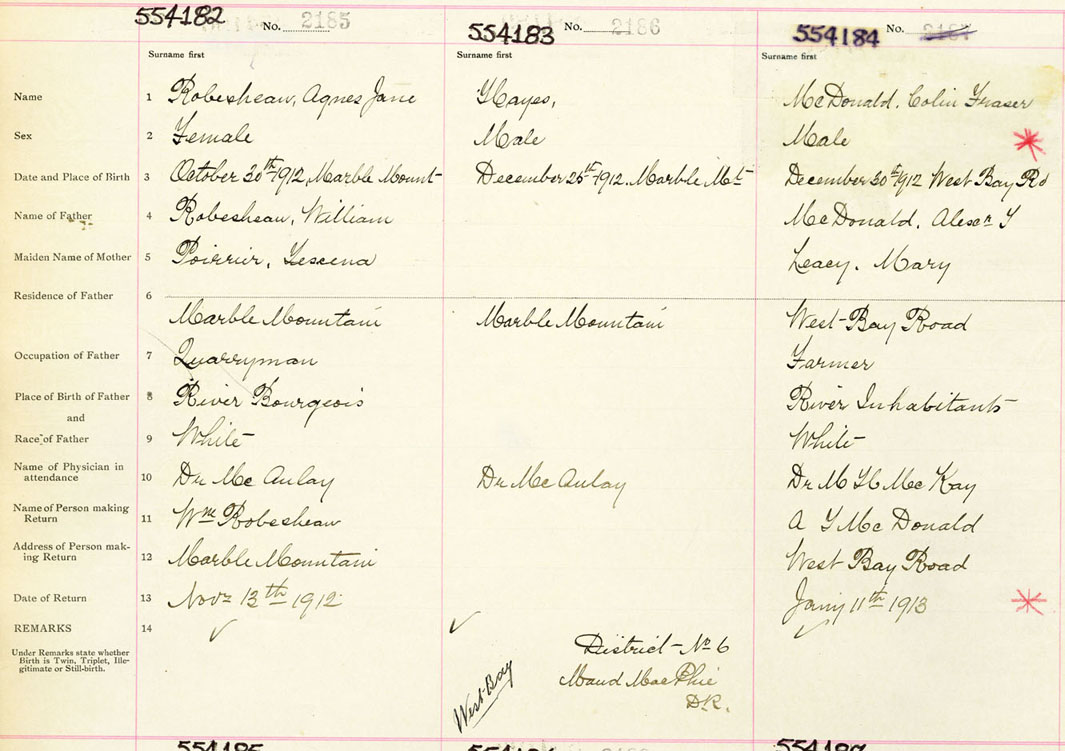 554182 No. 2185
554183 No. 2186
554184 No. 2187
Surname first Surname first Surname first
Name 1 Robesheau, Agnes Jane Hayes, McDonald, Colin Fraser
Sex 2 Female Male Male
Date and Place of Birth 3 October 30th 1912, Marble Mount December 25th 1912, Marble Mt December 30th 1912 West Bay Rd
Name of Father 4 Robesheau, William McDonald, Alexr Y
Maiden Name of Mother 5 Poirrier, Lescena Leacy, Mary
Residence of Father 6
Marble Mountain Marble Mountain West Bay Road
Occupation of Father 7 Quarryman Farmer
Place of Birth of Father 8 River Bourgeois River Inhabitants
and
Race of Father 9 White White
Name of Physician in
attendance 10 Dr McAulay Dr McAulay Dr M H McKay
Name of Person making
Return 11 Wm Robesheau A Y McDonald
Address of Person mak-
ing Return 12 Marble Mountain West Bay Road
Date of Return 13 Novr 13th 1912 Jany 11th 1913
REMARKS 14
Under Remarks state whether
Birth is Twin, Triplet, Ille-
gitimate or Still-birth.
District No 6
Maud MacPhie
D.R.
West Bay
554185